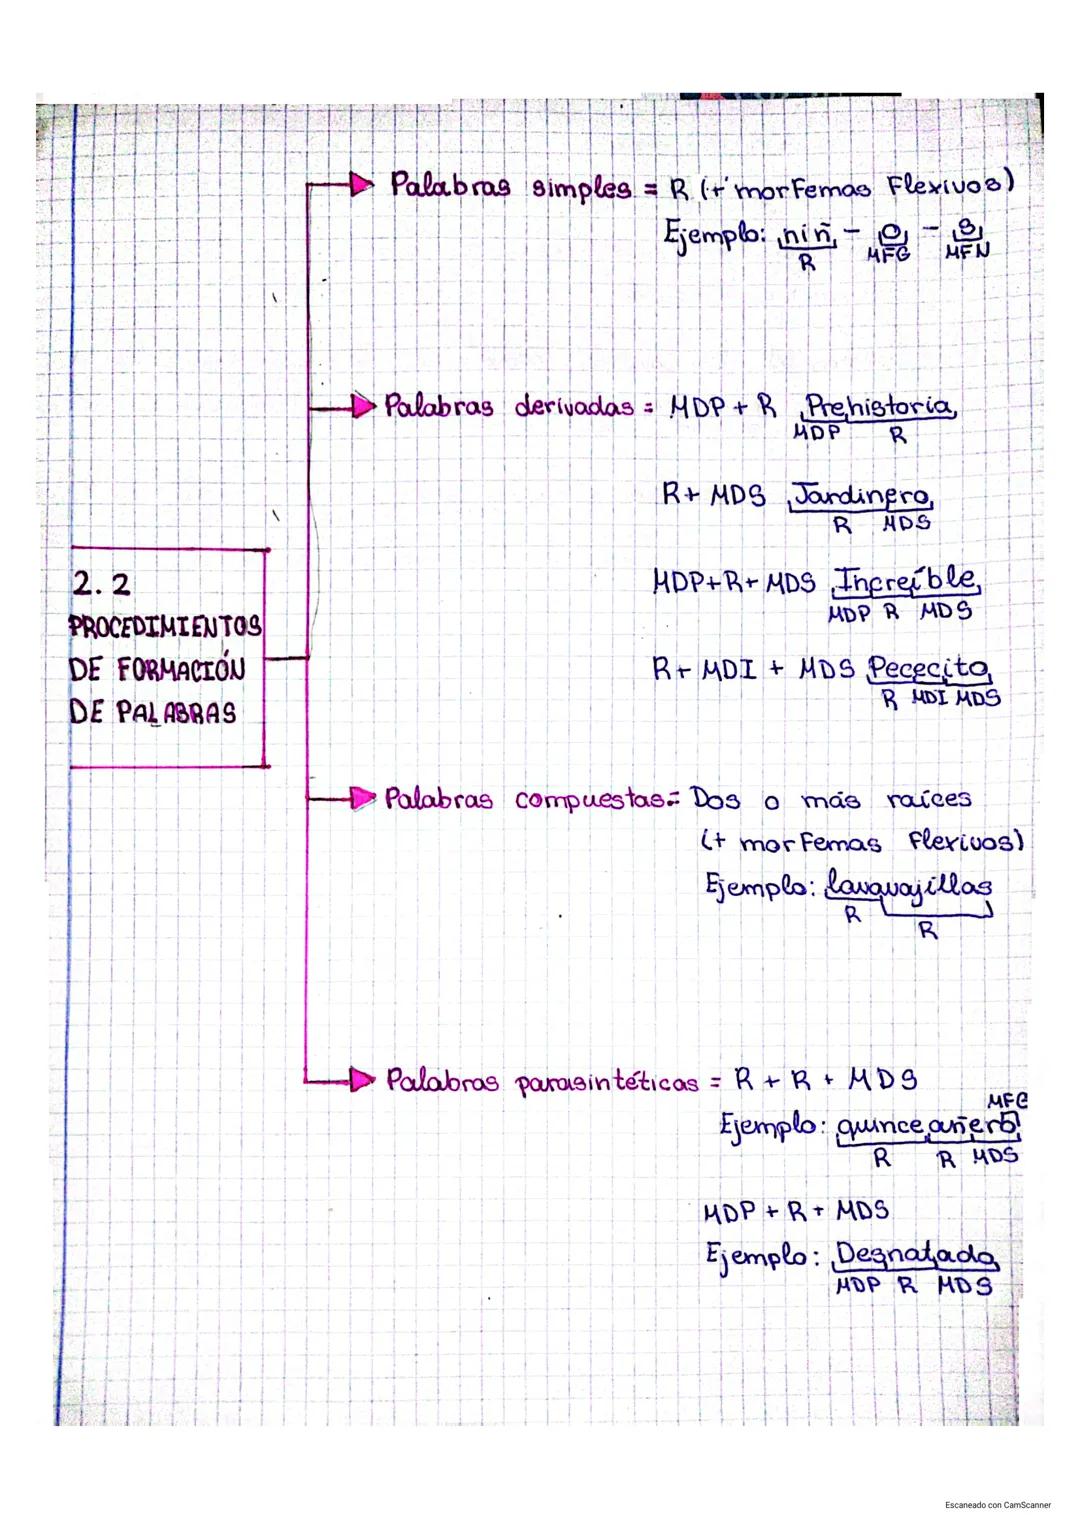 Palabras simples = R (+ morfemas flexivos)
Ejemplo: niñ - o - s
R MFG MFN
Palabras derivadas = MDP + R Prehistoria
MDP R
R + MDS Jardinero
R MDS
MDP+R+MDS Increíble
MDP R MDS
R + MDI + MDS Pececito
R MDI MDS
2.2
PROCEDIMIENTOS
DE FORMACIÓN
DE PALABRAS
Palabras compuestas = Dos o más raíces
(+ morfemas flexivos)
Ejemplo: lavavajillas
R
R
Palabras parasintéticas = R + R + MDS
MFG
Ejemplo: quinceañero
R R MDS
MDP + R + MDS
Ejemplo: Desnatado
MDP R MDS
Escaneado con CamScanner